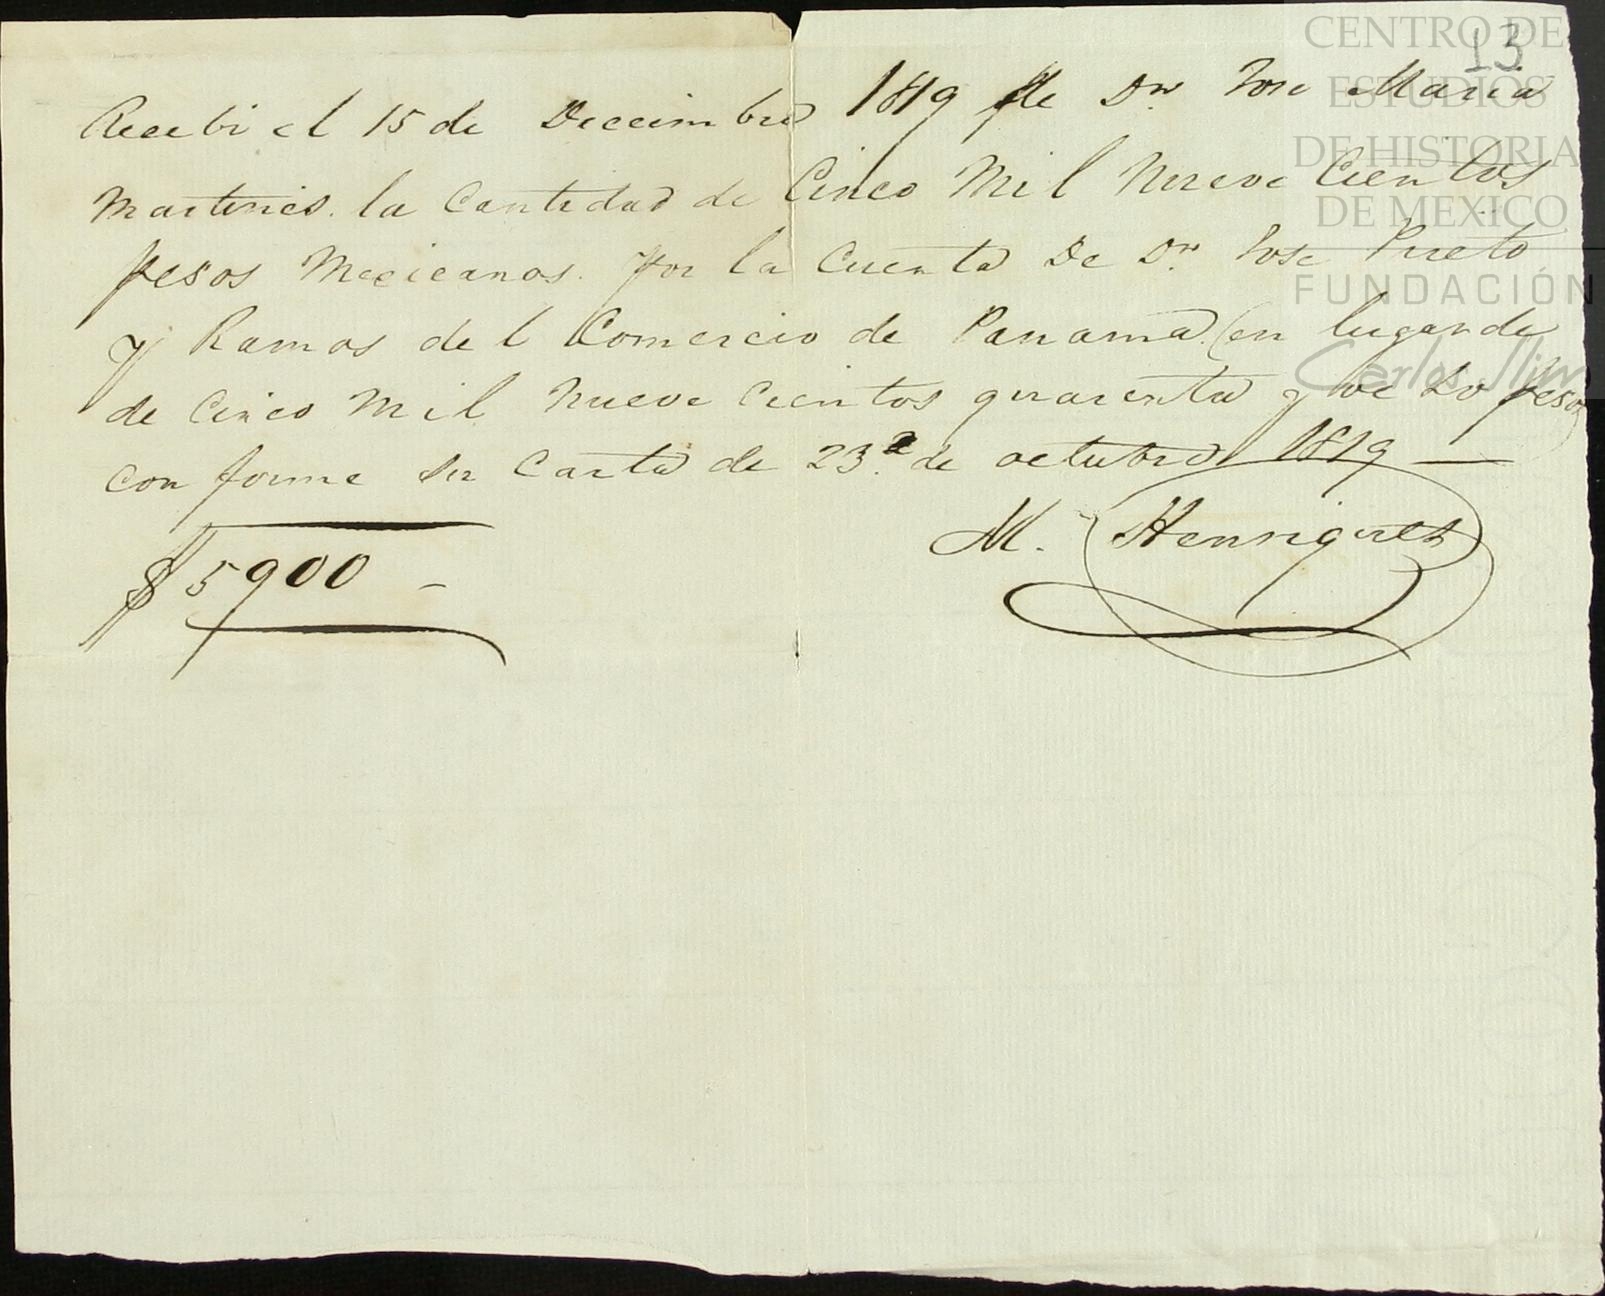 13
Recebi el 15 de Dicciembre 1819 de Dn Jose Maria
Martines. la Cantidad de Cinco Mil Nueve Cientos
pesos Mexicanos. por la Cuenta De Dn Jose Prieto
y Ramos del Comercio de Panama. (en lugar de
de Cinco Mil Nueve Cientos quarenta y pesos)
con forme su Carta de 23.a de octubre 1819 —
M. Henriquez
$ 5900 –
CENTRO DE
ESTUDIOS
DE HISTORIA
DE MEXICO
FUNDACIÓN
Carlos Slim